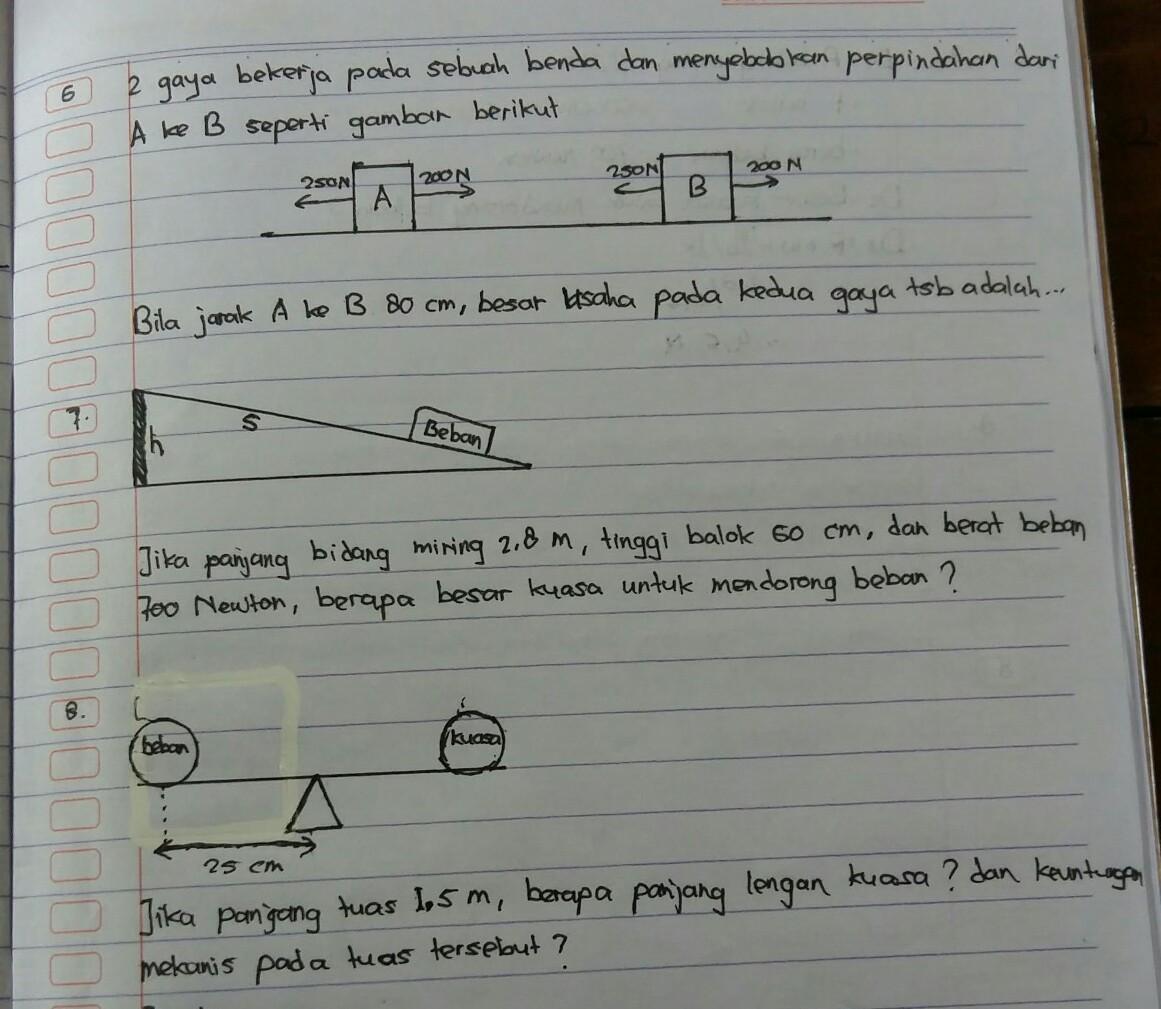 6 2 gaya bekerja pada sebuah benda dan menyebabkan perpindahan dari
A ke B seperti gambar berikut
250N A 200N 250N B 200 N
Bila jarak A ke B 80 cm, besar usaha pada kedua gaya tsb adalah...
7.
h s Beban
Jika panjang bidang miring 2,8 m, tinggi balok 60 cm, dan berat beban
700 Newton, berapa besar kuasa untuk mendorong beban ?
8.
beban kuasa
25 cm
Jika panjang tuas 1,5 m, berapa panjang lengan kuasa ? dan keuntungan
mekanis pada tuas tersebut ?